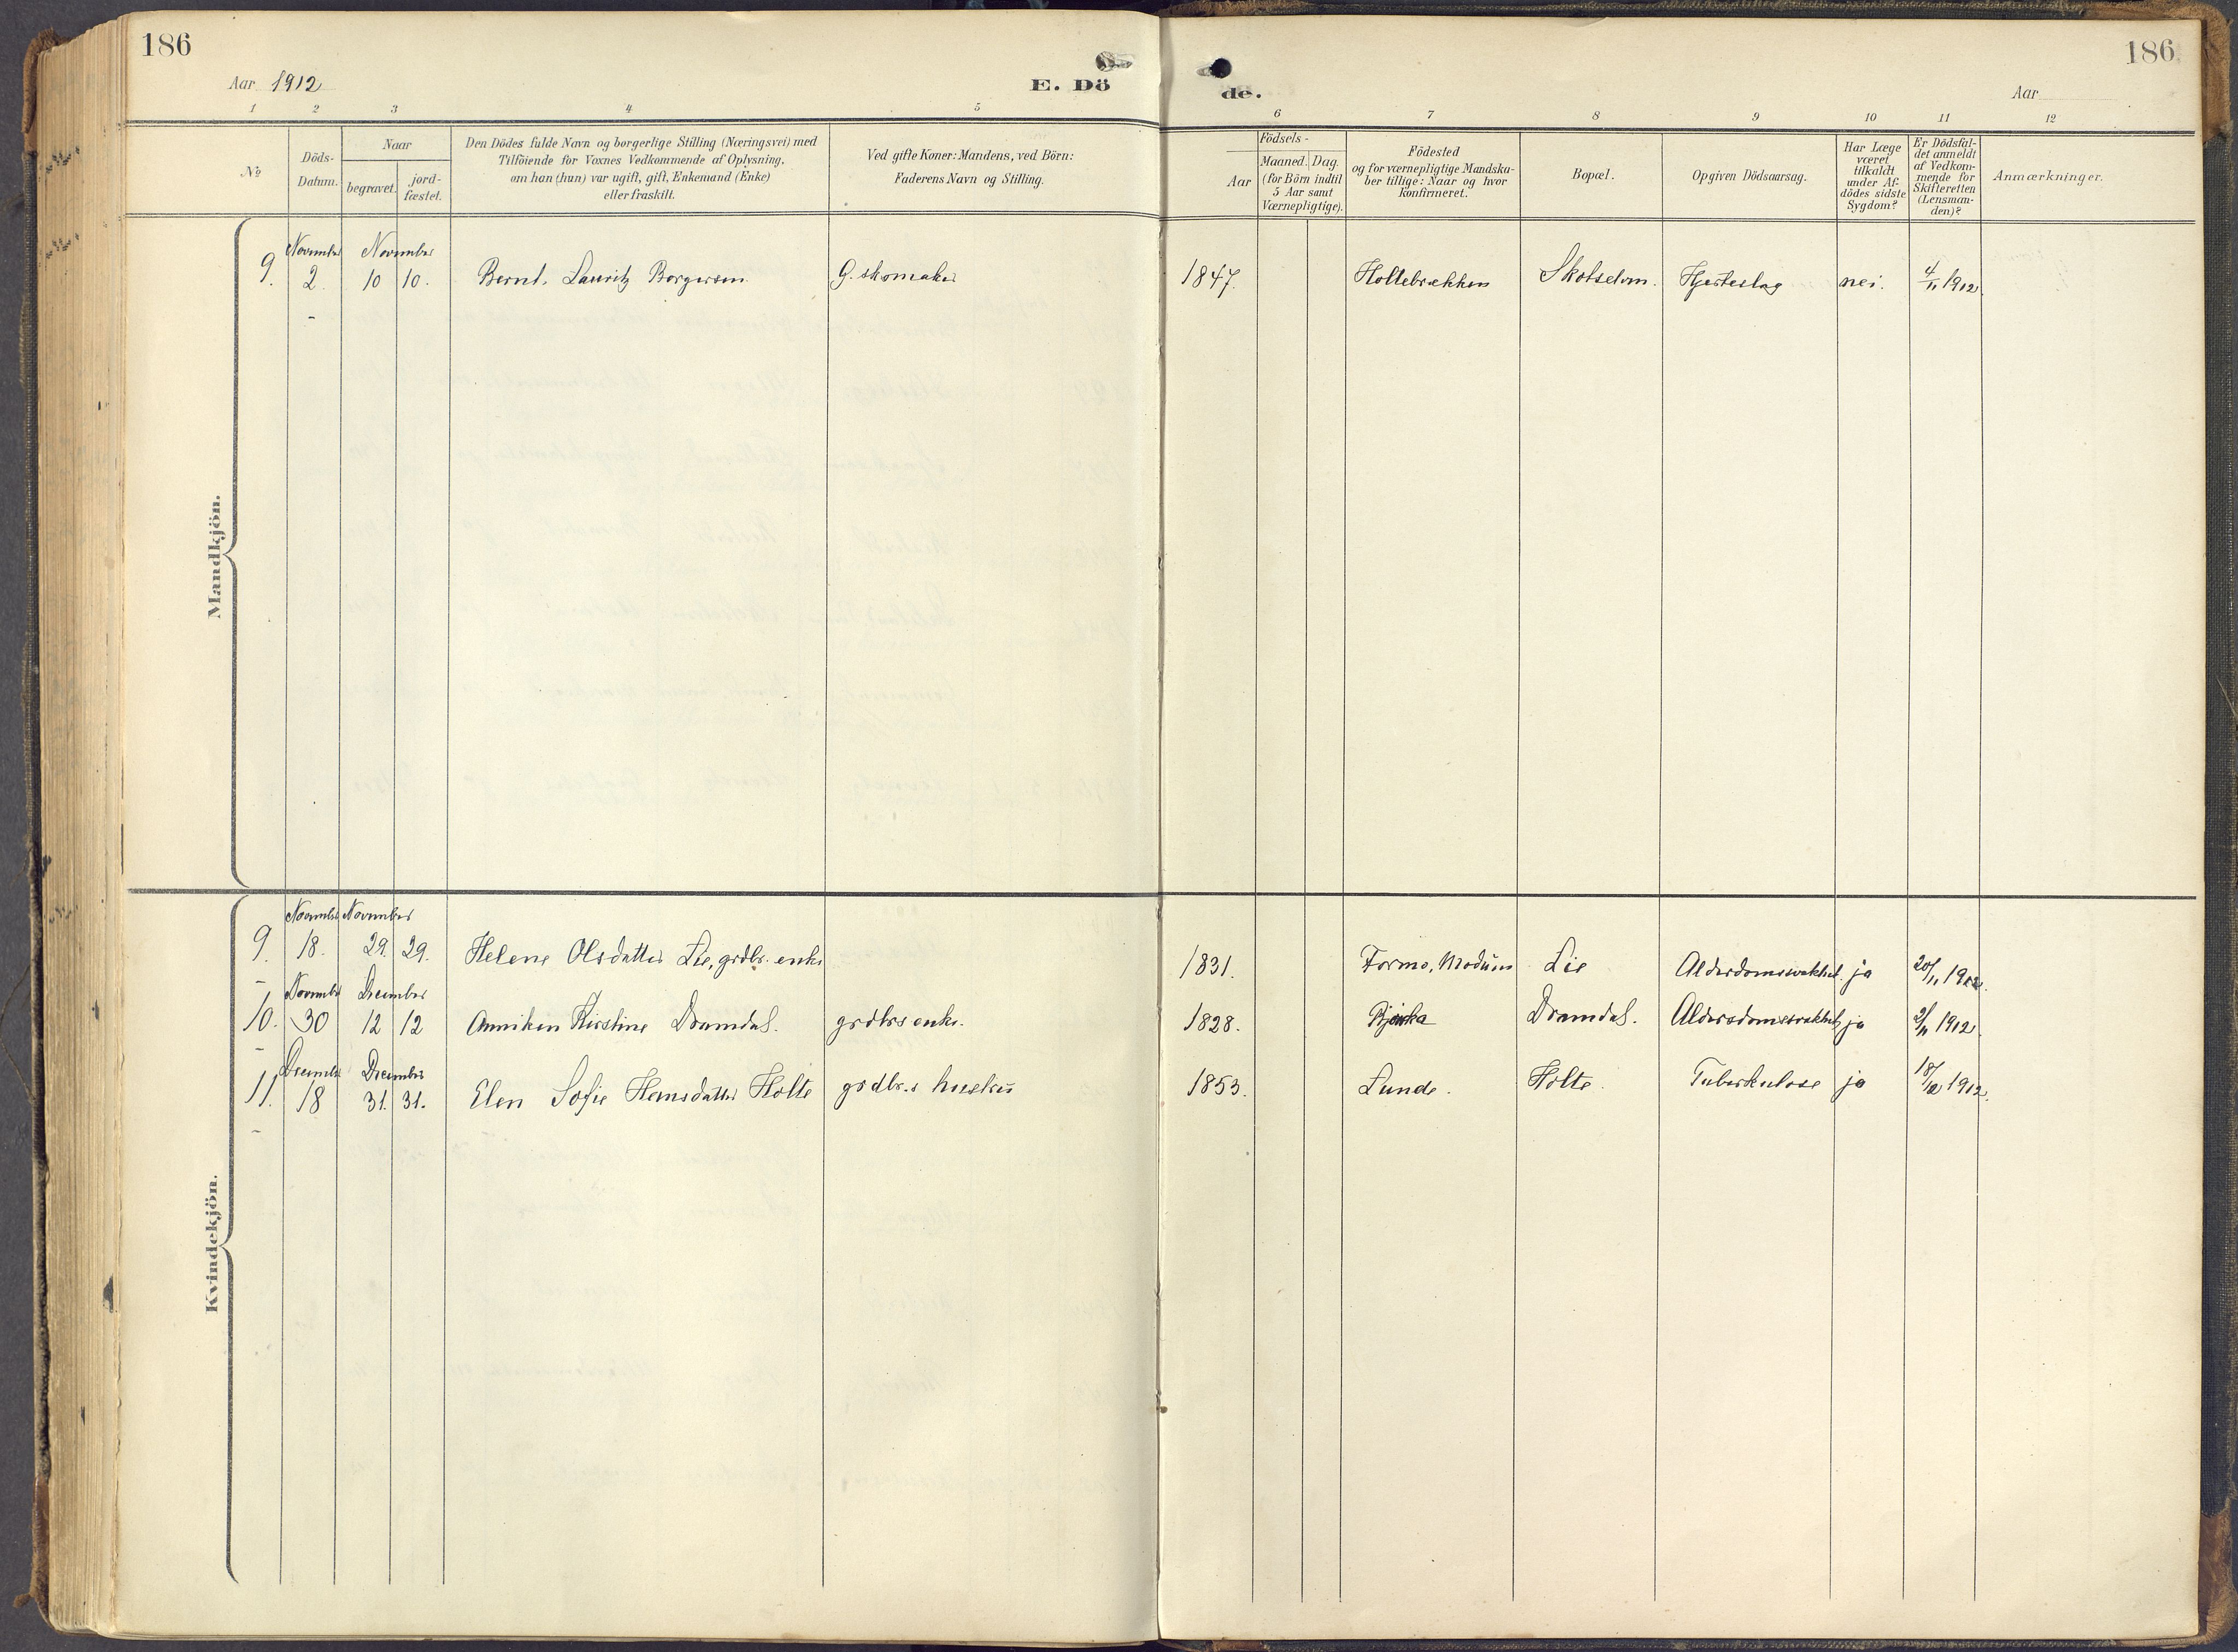 186
186
Aar 1912
E. Dö
de.
Aar
1 2 3 4 5 6 7 8 9 10 11 12
No
Döds-
Datum.
Naar
begravet.
jord-
fæstet.
Den Dödes fulde Navn og borgerlige Stilling (Næringsvei) med
Tilföiende for Voxnes Vedkommende af Oplysning,
om han (hun) var ugift, gift, Enkemand (Enke)
eller fraskilt.
Ved gifte Koner: Mandens, ved Börn:
Faderens Navn og Stilling.
Födsels-
Aar
Maaned. Dag.
(for Börn indtil
5 Aar samt
Værnepligtige).
Födested
og for værnepligtige Mandska-
ber tillige: Naar og hvor
konfirmeret.
Bopæl.
Opgiven Dödsaarsag.
Har Læge
været
tilkaldt
under Af-
dödes sidste
Sygdom?
Er Dödsfal-
det anmeldt
af Vedkom-
mende for
Skifteretten
(Lensman-
den)?
Anmærkninger.
Mandkjön.
November November
9. 2. 10 10. Bernt Lauritz Borgersen G. skomaker 1847. Holtebrækken Skotselven. Hjerteslag nei. 4/11 1912.
Kvindekjön.
November November
9. 18. 29. 29. Helene Olsdatter Lie, grdbr. enke 1831. Formo, Modum Lie ja 20/11 1912.
November December
10. 30 12 12 Anniken Kirstine Dramdal. grdbrs enke. 1828. Dramdal. ja 2/11 1912.
December December
11. 18 31. 31. Elen Sofie Hansdatter Holte grdbr.s hustru 1853. Lunde. Holte. Tuberkulose ja 18/12 1912.